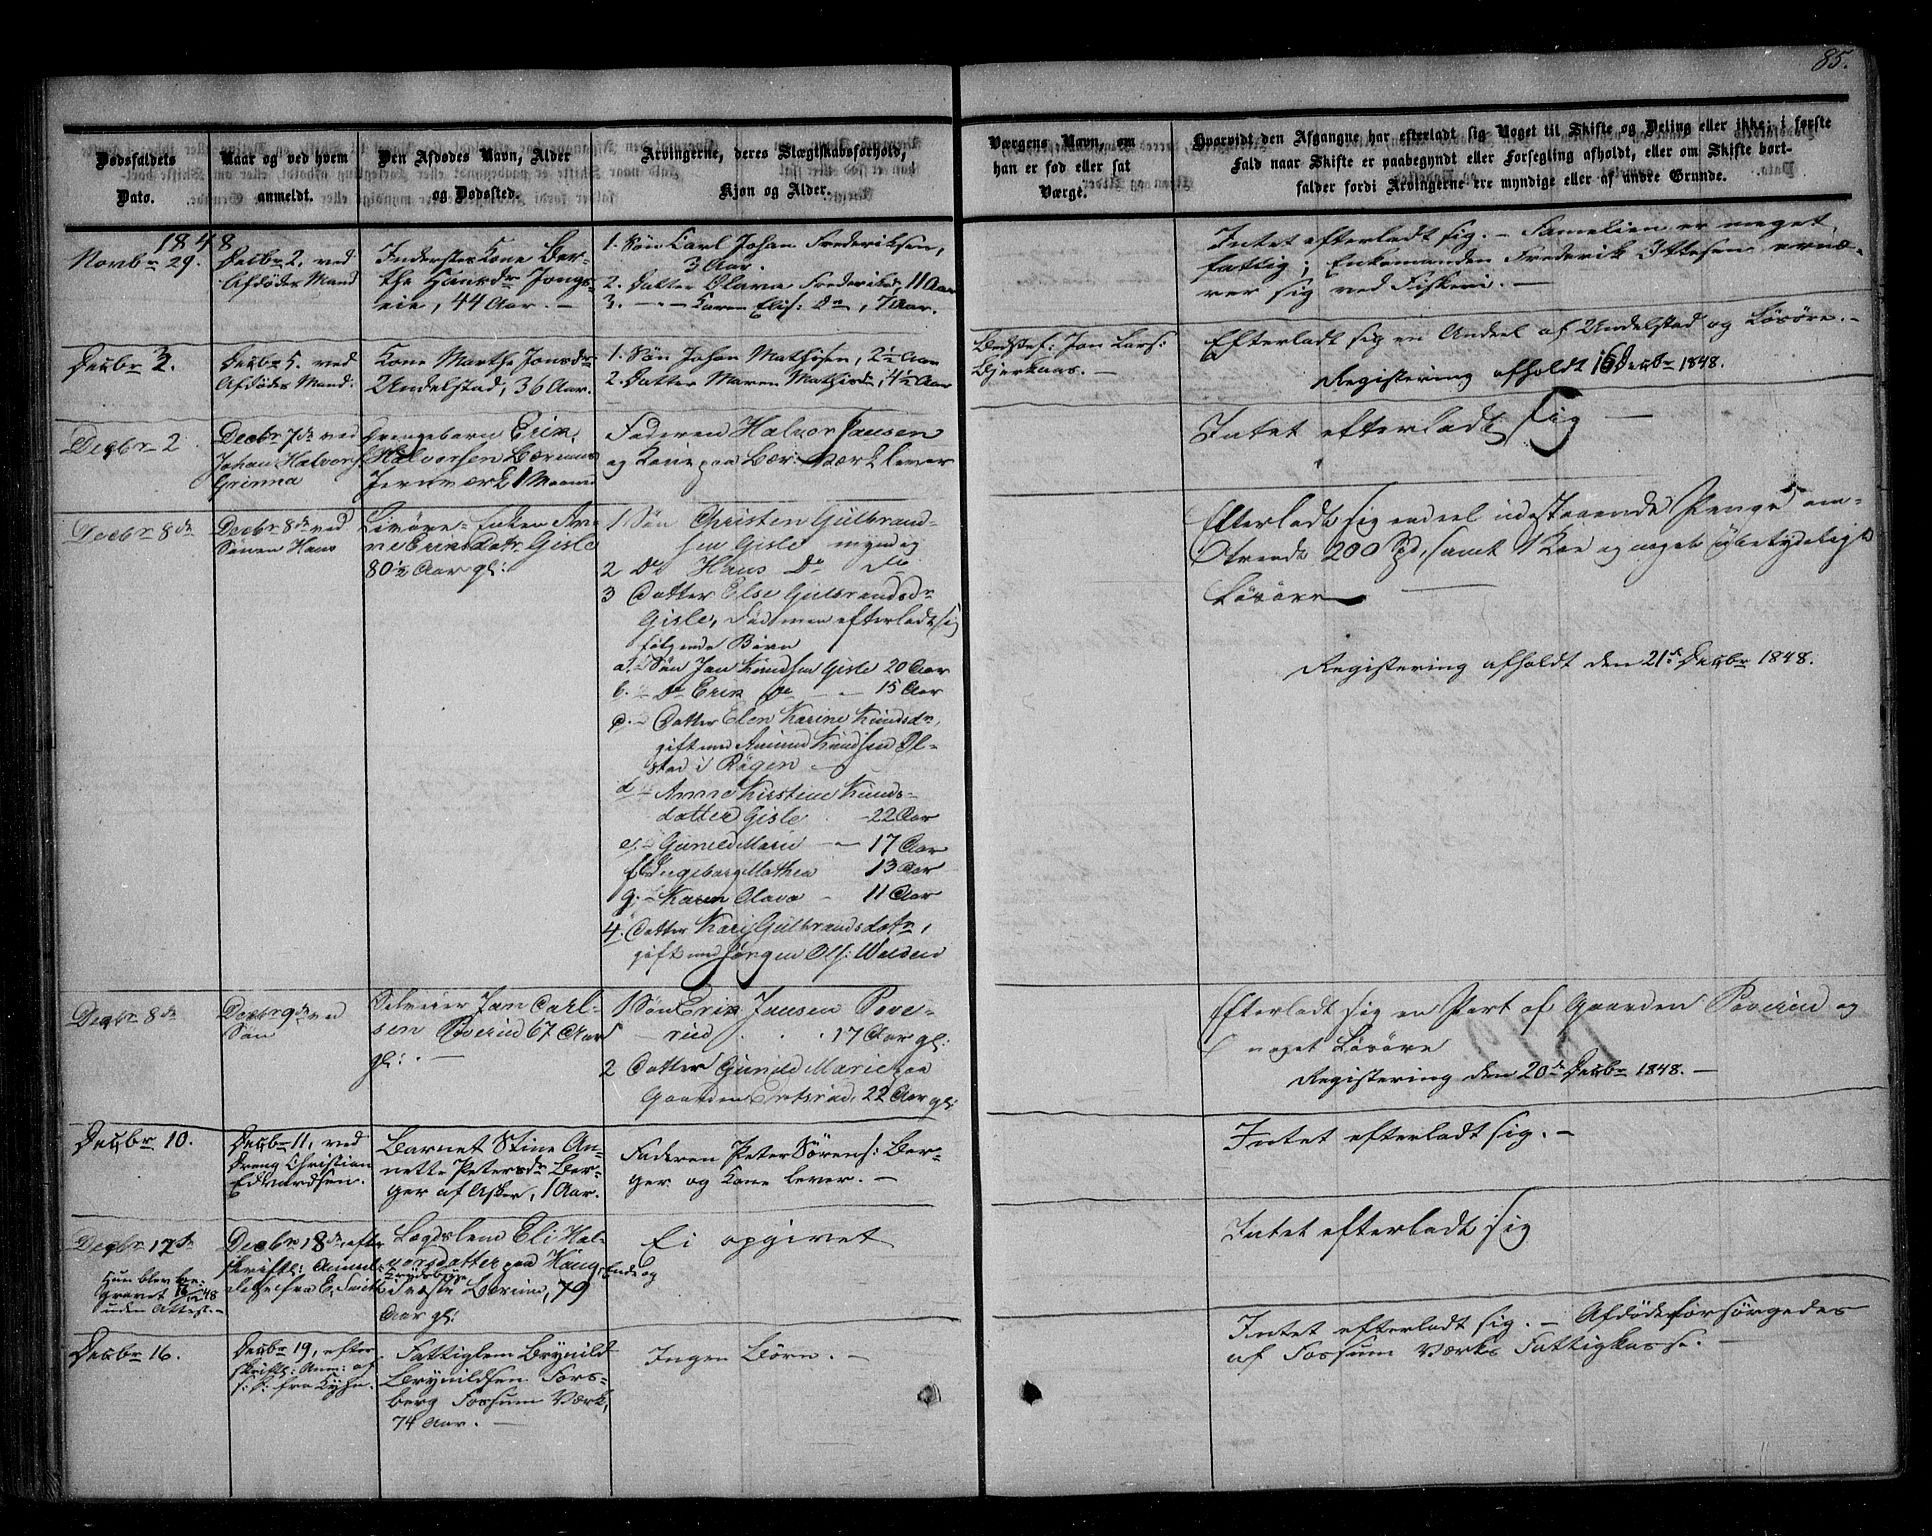 85.
Dødsfaldets
Dato.
Naar og ved hvem
anmeldt.
Den Afdødes Navn, Alder
og Dødssted.
Arvingerne, deres Slægtskabsforhold,
Kjøn og Alder.
Værgens Navn, om
han er fød eller sat
Værge.
Hvorvidt den Afgangne har efterladt sig Noget til Skifte og Deling eller ikke; i første
Fald naar Skifte er paabegyndt eller Forsegling afholdt, eller om Skifte bort-
falder fordi Arvingerne ere myndige eller af andre Grunde.
1848
Novbr 29.
Decbr 2, ved
Afdødes Mand
Inderstes Kone Ber-
the Hansdr Jongs-
eie, 44 Aar. –
1. Søn Carl Johan Frederiksen,
3 Aar.
2. Datter Olava Frederiksd, 11 Aar
3. – „ – Karen Elis: Do, 7 Aar.
Intet efterladt sig. – Familien er meget
fattig; Enkemanden Frederik Ittesen ernæ-
rer sig ved Fiskeri. –
Decbr 2.
Decbr 5. ved
Afdødes Mand.
Kone Marthe Jonsdr
Undelstad, 36 Aar.
1. Søn Johan Mathisen, 2½ Aar
2. Datter Maren Mathisdr, 4½ Aar
Bedstef: Jon Lars:
Bjerkaas. –
Efterladt sig en Andeel af Undelstad og Løsøre. –
Registering afholdt 16 Decbr 1848.
Decbr 2
Decbr 7de ved
Johan Halvors
Grinna
Drengebarn Erik
Halvorsen Bærums
Jernværk 1 Maaned
Faderen Halvor Jansen
og Kone paa Bær: Værk lever
Intet efterladt sig –
Decbr 8de
Decbr 8de ved
Sønen Hans
Livøre-Enken An-
ne Eriksdatr Gisle
80½ Aar gl:
1 Søn Christen Gulbrand-
sen Gisle myndig
2 Do Hans Do do
3 Datter Else Gulbrandsdr
Gisle, død men efterladt sig
følgende Børn
a. Søn Jan Knudsen Gisle 20 Aar
b. – Do Erik Do – 15 Aar
c. – Datter Elen Karine Knudsdr,
gift med Amund Knudsen Øl-
stad i Røgen –
d – Anne Kirstine Knuds-
datter Gisle 22 Aar
e. – Gunild Marie – 17 Aar
f Ingeborg Mathea 13 Aar
g. – Karen Olava – 11 Aar
4. Datter Kari Gulbrandsdatr,
gift med Jørgen Ols: Walden
Efterladt sig endeel udestaaende Penge om-
trendt 200 Spd, samt 1 Koe og noget ubetydeligt
Løsøre –
Registering afholdt den 21de Decbr 1848.
Decbr 8de
Decbr 9de ved
Søn
Selveier Jan Carl-
sen Poverud 67 Aar
gl: –
1 Søn Erik Jansen Pove-
rud 17 Aar gl:
2 Datter Gunild Marie paa
Gaarden 22 Aar gl:
Efterladt sig en Part af Gaarden Poverud og
noget Løsøre
Registering den 20de Decbr 1848. –
Decbr 10.
Decbr 11, ved
Dreng Christian
Edvardsen.
Barnet Stine An-
nette Petersdr Ber-
ger af Asker, 1 Aar.
Faderen Peter Sørens: Ber-
ger og Kone lever. –
Intet efterladt sig. –
Decbr 17de
Hun blev be-
gravet 16/12 48
uden Attest. –
Decbr 18de efter
skriftl: Anmel-
delse fra E. Smith
Lægdslem Eli Hal-
vorsdatter paa Haug,
i Vestre Bærum, 79
Aar gl:
Ei opgivet
Intet efterladt sig
Decbr 16.
Decbr 19, efter
skriftl: Anm: af
s: f: fra Kyhn.
Fattiglem Brynild
Brynildsen Fors-
berg Fossum Værk,
74 Aar. –
Ingen Børn. –
Intet efterladt sig. – Afdøde forsørgedes
af Fossum Værks Fattigkasse. –